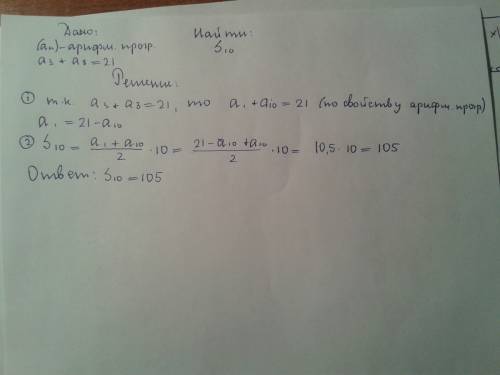 Дано: Найти:
(an) - арифм. прогр. S10
a3 + a8 = 21
Решение:
① т.к. a3 + a8 = 21, то a1 + a10 = 21 (по свойству арифм. прогр)
a1 = 21 - a10
② S10 = (a1 + a10)/2 · 10 = (21 - a10 + a10)/2 · 10 = 10,5 · 10 = 105
Ответ: S10 = 105